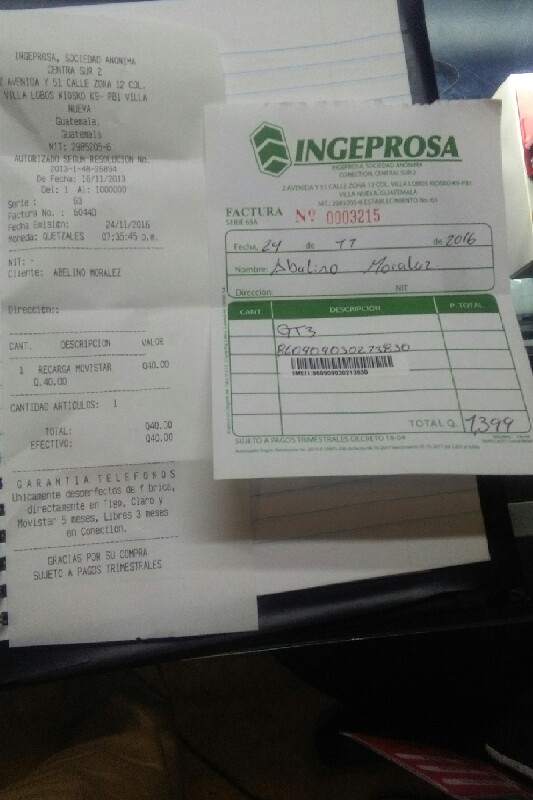 INGEPROSA, SOCIEDAD ANONIMA
CENTRA SUR 2
2 AVENIDA Y 51 CALLE ZONA 12 COL.
VILLA LOBOS KIOSKO K9- PB1 VILLA
NUEVA
Guatemala,
Guatemala
NIT: 2985205-6
AUTORIZADO SEGUN RESOLUCION No.
2013-1-48-26894
De Fecha: 16/11/2013
Del: 1 Al: 1000000
Serie : 63
Factura No. : 60440
Fecha Emision: 24/11/2016
Moneda: QUETZALES 07:35:45 p.m.
NIT: -
Cliente: ABELINO MORALEZ
Direccion:
CANT. DESCRIPCION VALOR
1 RECARGA MOVISTAR Q40.00
Q.40.00
CANTIDAD ARTICULOS: 1
TOTAL: Q40.00
EFECTIVO: Q40.00
GARANTIA TELEFONOS
Unicamente desperfectos de fabrica,
directamente en Tigo, Claro y
Movistar 5 meses, Libres 3 meses
en Conection.
GRACIAS POR SU COMPRA
SUJETO A PAGOS TRIMESTRALES
INGEPROSA
INGEPROSA, SOCIEDAD ANÓNIMA
CONECTION, CENTRAL SUR 2
2 AVENIDA Y 51 CALLE ZONA 12 COL. VILLA LOBOS KIOSKO K9-PB1
VILLA NUEVA GUATEMALA
NIT.: 2985205-6 ESTABLECIMIENTO No. 63
FACTURA
SERIE 68A
Nº 0003215
Fecha, 24 de 11 de 2016
Nombre: Abelino Moralez
Dirección: NIT
CANT. DESCRIPCIÓN P. TOTAL
GT3
860909030273830
IMEI1: 860909030273830
TOTAL Q. 1,399
SUJETO A PAGOS TRIMESTRALES DECRETO 18-04